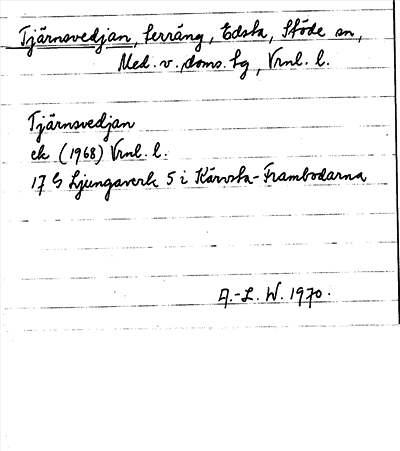 Tjärnsvedjan, terräng, Edsta, Stöde sn,
Med. v. doms. tg, Vrnl. l.
Tjärnsvedjan
ek (1968) Vrnl. l.
17 G Ljungaverk 5 i Kärvsta-Frambodarna
A.-L. W. 1970.